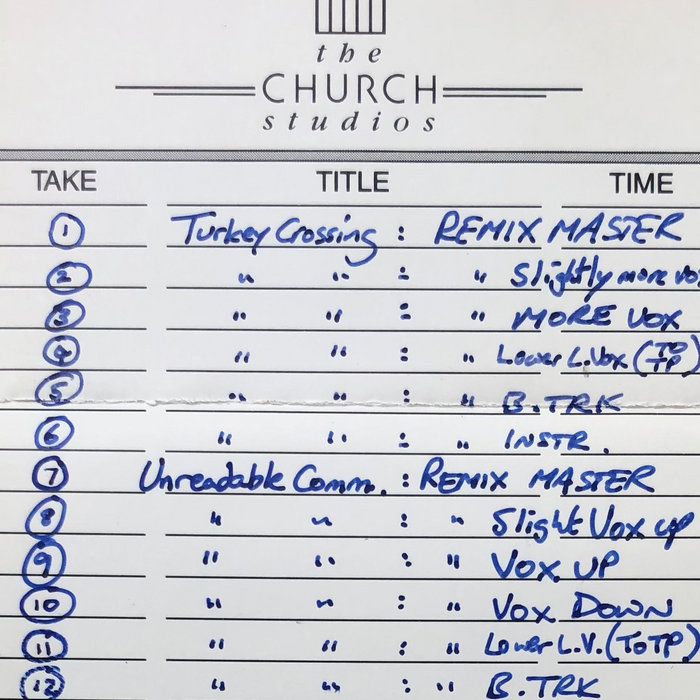 the
CHURCH
studios
TAKE TITLE TIME
1 Turkey Crossing : REMIX MASTER
2 " " : " Slightly more vo
3 " " : " MORE VOX
4 " " : " Lower L.Vox (TOTP)
5 " " : " B.TRK
6 " " : " INSTR.
7 Unreadable Comm. : REMIX MASTER
8 " " : " Slight Vox up
9 " " : " VOX UP
10 " " : " VOX DOWN
11 " " : " Lower L.V. (TOTP)
12 " " : " B.TRK